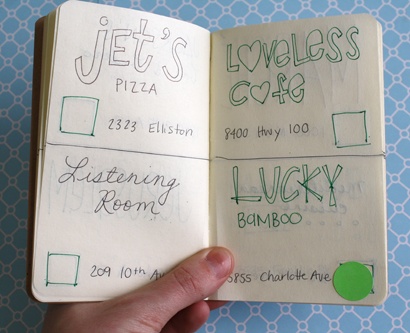 Jet's
PIZZA
2323 Elliston
Loveless
Cafe
8400 Hwy 100
Listening
Room
209 10th
LUCKY
BAMBOO
5855 Charlotte Ave